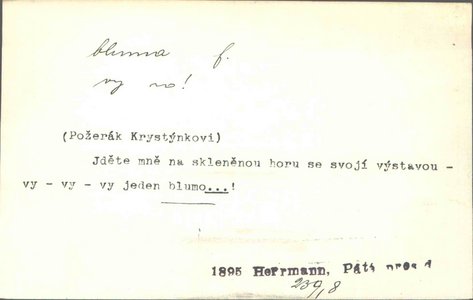 bluma f.
vy no!
(Požerák Krystýnkovi)
Jděte mně na skleněnou horu se svojí výstavou -
vy - vy - vy jeden blumo...!
1895 Herrmann, Pátý
239,8